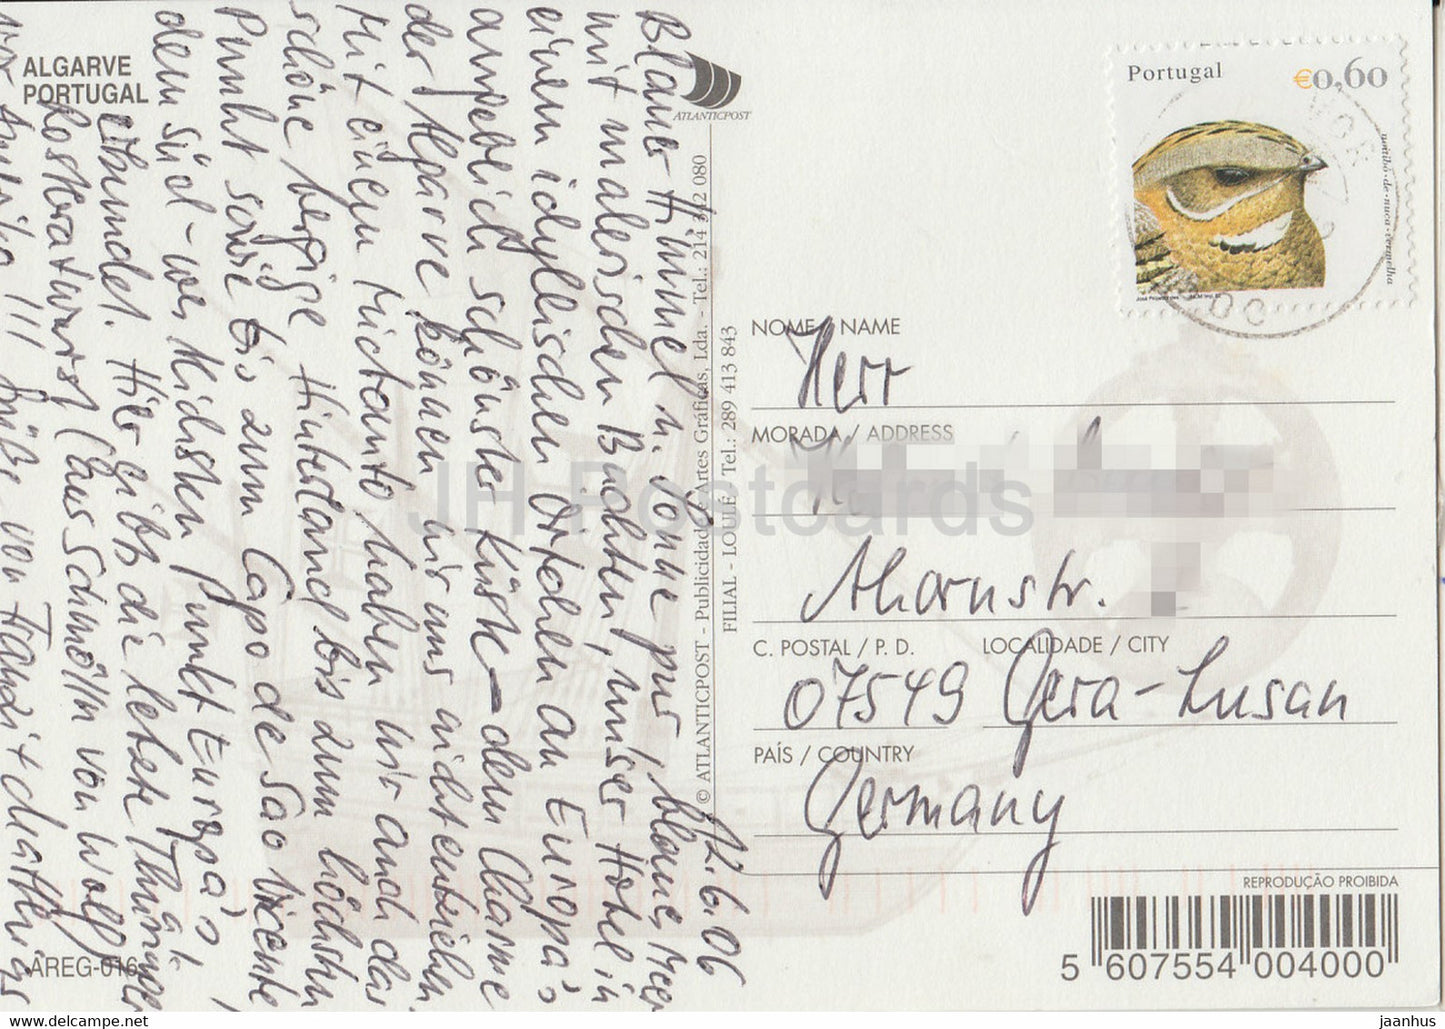 ALGARVE
PORTUGAL
12.6.06
Blauer Himmel u. Sonne pur, blaues Meer
mit malerischen Buchten, unser Hotel in
einem idyllischen Örtchen an Europa's
angeblich schönster Küste - dem Charme
der Algarve können wir uns nicht entziehen.
Mit einem Mietauto haben wir auch das
schöne bergige Hinterland bis zum höchsten
Punkt sowie bis zum Capo de Sao Vicente,
dem süd-westlichsten Punkt Europa's,
erkundet. Hier gibt's die letzte Thüringer
Rostbratwurst (aus Schmölln von Wolf)
vor Amerika !!! Grüße von
AREG-016
ATLANTICPOST
© ATLANTICPOST - Publicidade e Artes Gráficas, Lda. - Tel.: 214 342 080
FILIAL - LOULÉ - Tel.: 289 413 843
Portugal €0,60
noitibó-de-nuca-vermelha
NOME / NAME
Herr
MORADA / ADDRESS
Ahornstr.
C. POSTAL / P. D. LOCALIDADE / CITY
07549 Gera-Lusan
PAÍS / COUNTRY
Germany
REPRODUÇÃO PROIBIDA
5 607554 004000
JH Postcards
www.delcampe.net
jaanhus